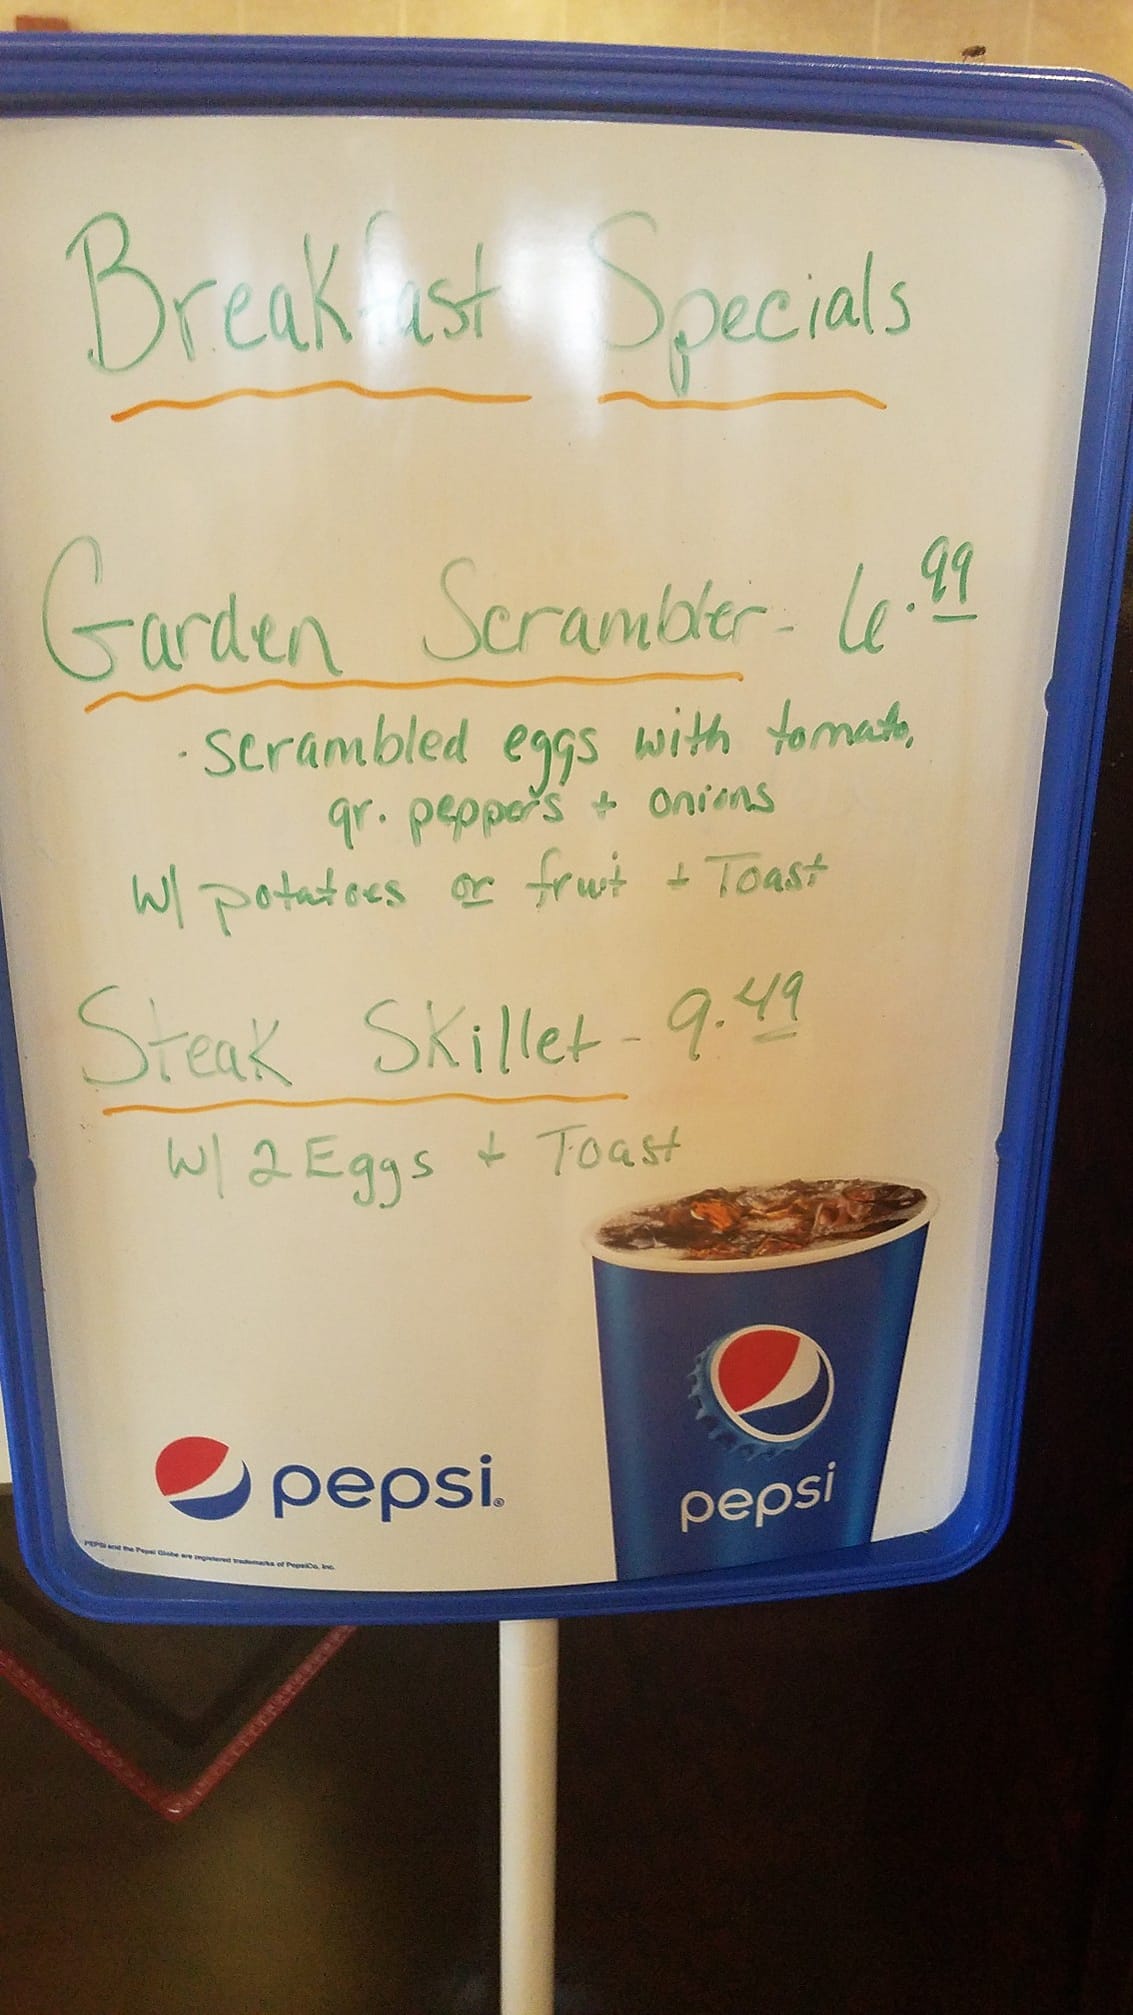 Breakfast Specials
Garden Scrambler - 6.99
· scrambled eggs with tomato,
gr. peppers + onions
W/ potatoes or fruit + Toast
Steak Skillet - 9.49
W/ 2 Eggs + Toast
pepsi
pepsi®
PEPSI and the Pepsi Globe are registered trademarks of PepsiCo, Inc.